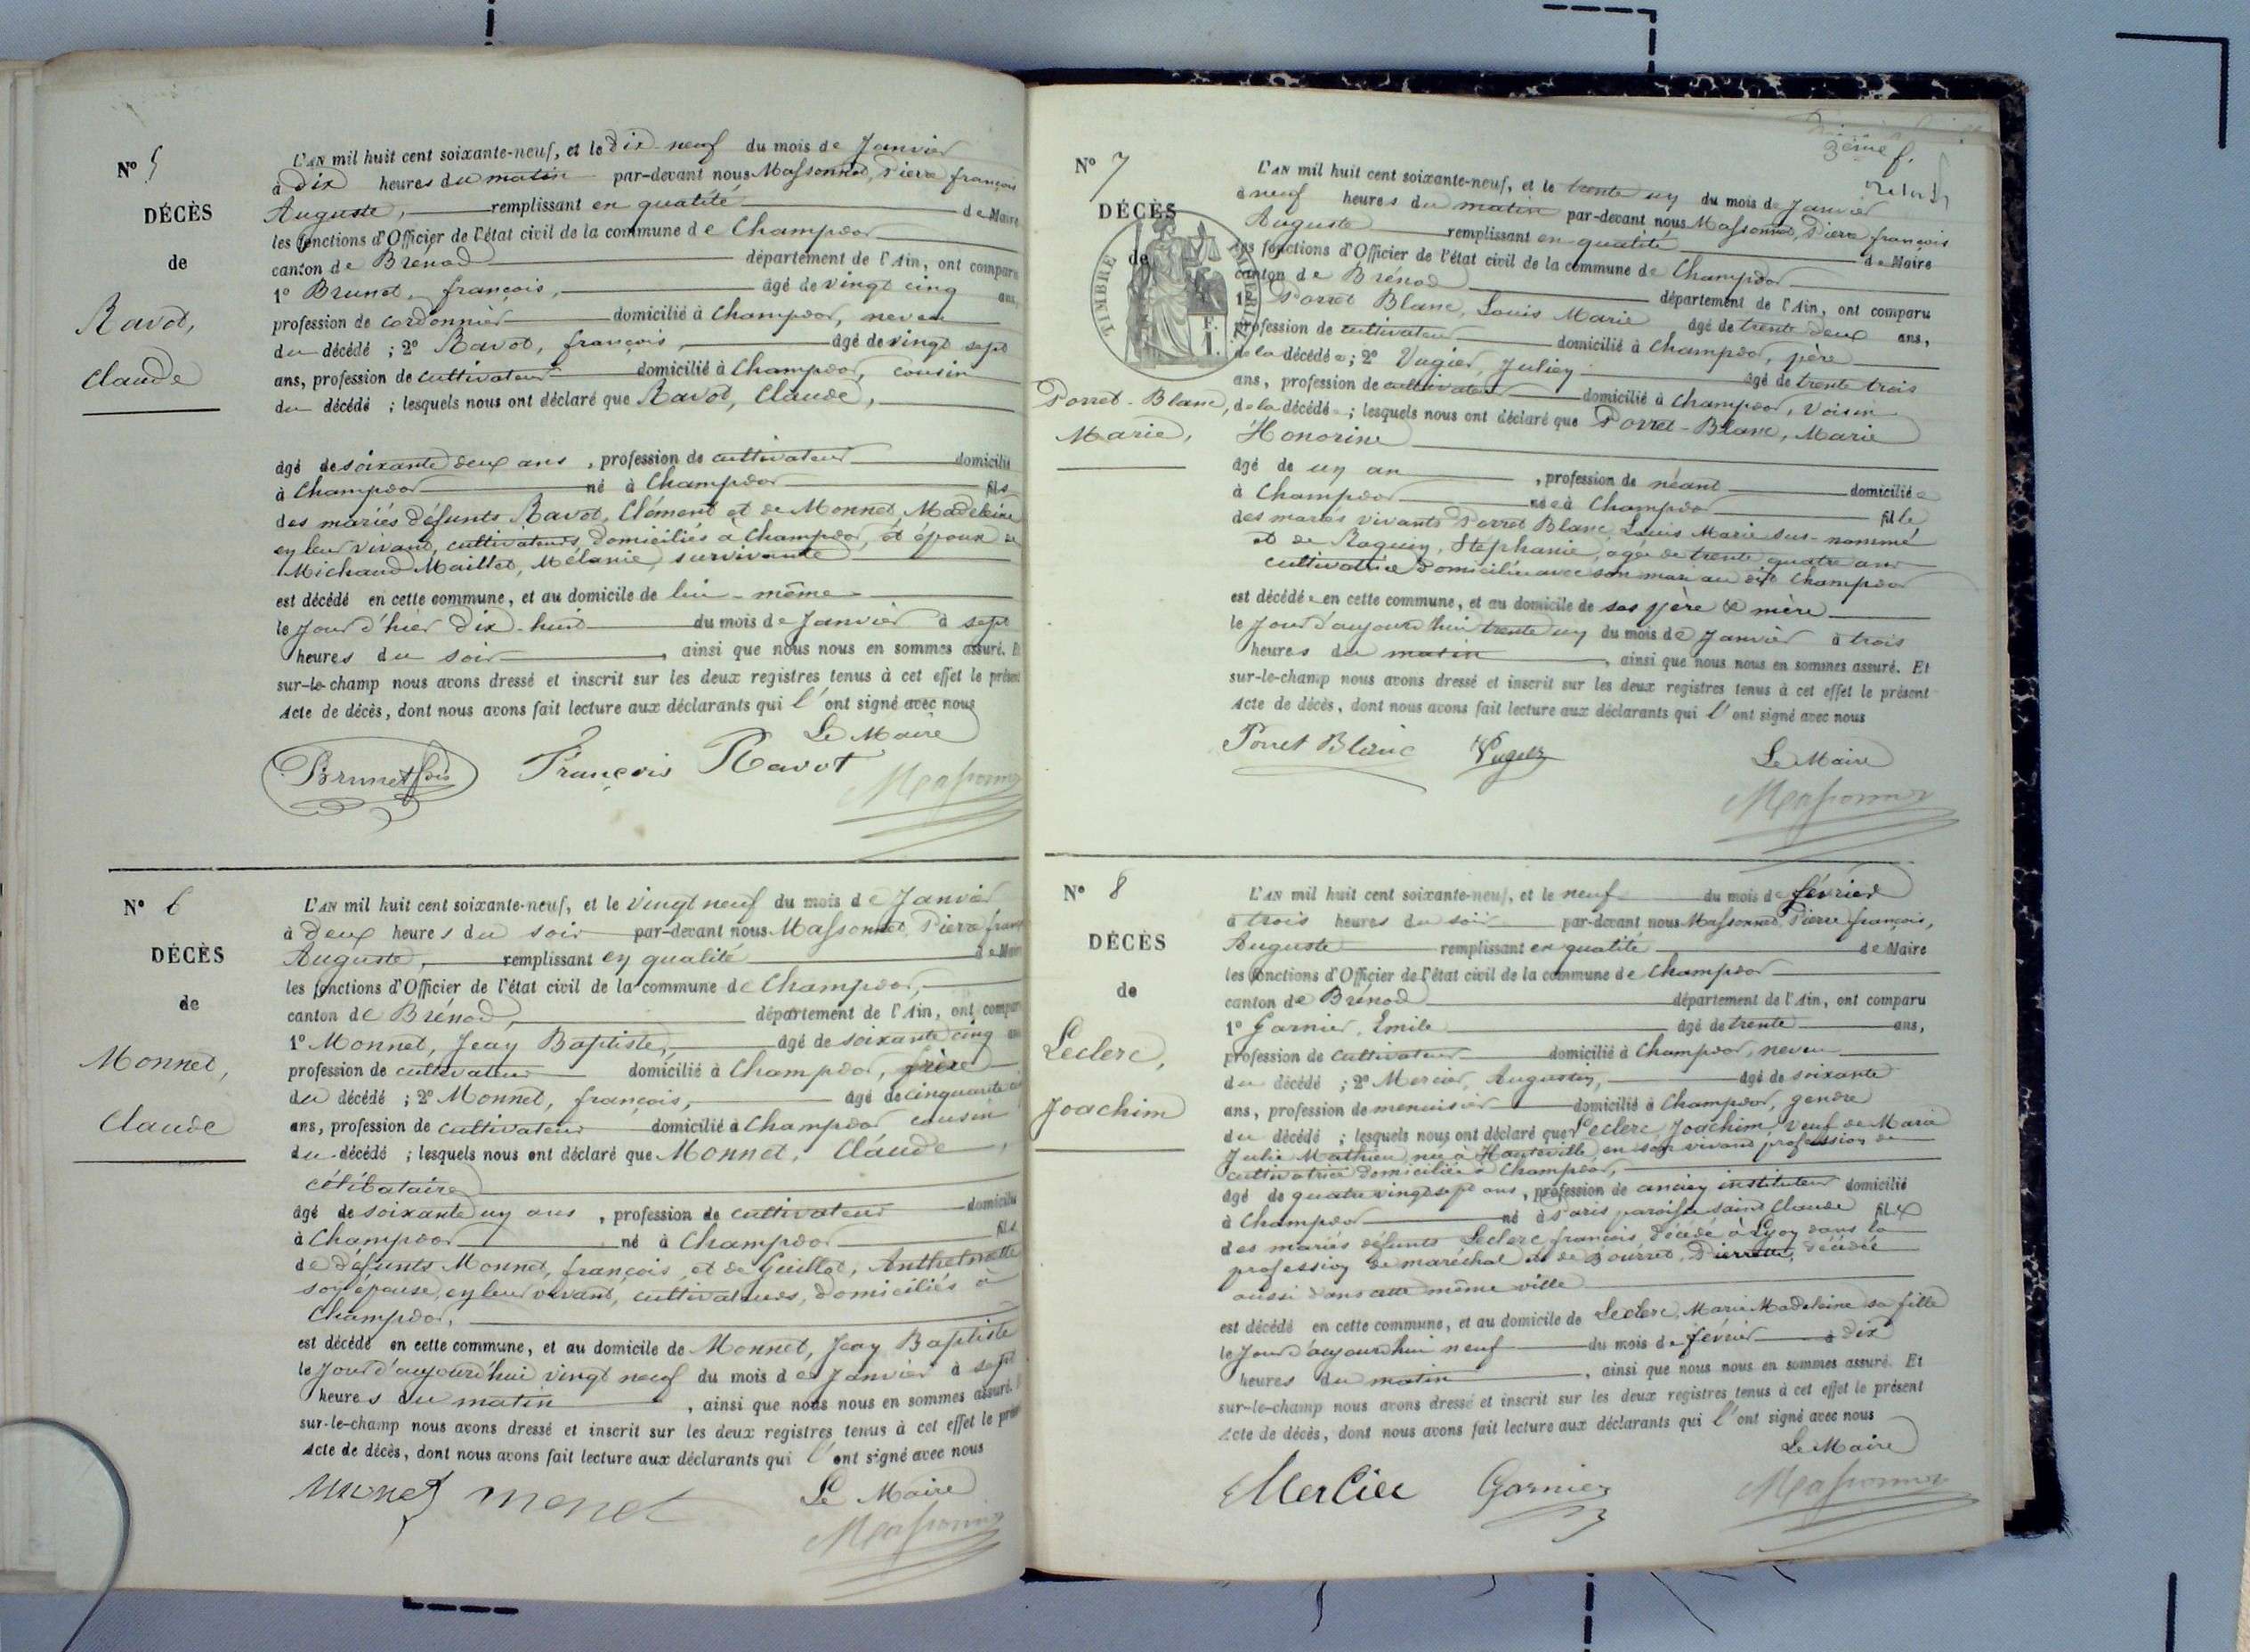 N° 5
DÉCÈS
de
Ravot,
Claude
L'AN mil huit cent soixante-neuf, et le dix-neuf du mois de Janvier
à dix heures du matin par-devant nous Massonnet, Pierre françois
Auguste, remplissant en qualité de Maire
les fonctions d'Officier de l'état civil de la commune de Champdor
canton de Brénod département de l'Ain, ont comparu
1° Brunet, françois, âgé de vingt cinq ans,
profession de cordonnier domicilié à Champdor, neveu
du décédé ; 2° Ravot, françois, âgé de vingt sept
ans, profession de cultivateur domicilié à Champdor, cousin
du décédé ; lesquels nous ont déclaré que Ravot, Claude,
âgé de soixante deux ans, profession de cultivateur domicilié
à Champdor né à Champdor fils
des mariés défunts Ravot, Clément et de Monnet, Madeleine
en leur vivant, cultivateurs, domiciliés à Champdor, et époux de
Michaud Maillet, Mélanie, survivante
est décédé en cette commune, et au domicile de lui-même
le Jour d'hier dix-huit du mois de Janvier à sept
heures du soir, ainsi que nous nous en sommes assuré. Et
sur-le-champ nous avons dressé et inscrit sur les deux registres tenus à cet effet le présent
Acte de décès, dont nous avons fait lecture aux déclarants qui l'ont signé avec nous
Le Maire
Brunet fois François Ravot Massonnet
N° 6
DÉCÈS
de
Monnet,
Claude
L'AN mil huit cent soixante-neuf, et le vingt neuf du mois de Janvier
à deux heures du soir par-devant nous Massonnet, Pierre franç
Auguste, remplissant en qualité de Maire
les fonctions d'Officier de l'état civil de la commune de Champdor,
canton de Brénod, département de l'Ain, ont compar
1° Monnet, Jean Baptiste, âgé de soixante cinq ans
profession de cultivateur domicilié à Champdor, frère
du décédé ; 2° Monnet, françois, âgé de cinquante
ans, profession de cultivateur domicilié à Champdor cousin
du décédé ; lesquels nous ont déclaré que Monnet, Claude,
célibataire
âgé de soixante un ans, profession de cultivateur domicilié
à Champdor né à Champdor fils
de défunts Monnet, françois et de Guillot, Anthelmette
son épouse, en leur vivant, cultivateurs, domiciliés à
Champdor,
est décédé en cette commune, et au domicile de Monnet, Jean Baptiste
le Jour d'aujourd'hui vingt neuf du mois de Janvier à sept
heures du matin, ainsi que nous nous en sommes assuré.
sur-le-champ nous avons dressé et inscrit sur les deux registres tenus à cet effet le présent
Acte de décès, dont nous avons fait lecture aux déclarants qui l'ont signé avec nous
Le Maire
monet Massonnet
3ème f.
N° 7
DÉCÈS
de
TIMBRE
1 F.
Porret-Blanc,
Marie,
L'AN mil huit cent soixante-neuf, et le trente un du mois de Janvier
à neuf heures du matin par-devant nous Massonnet, Pierre françois
Auguste remplissant en qualité de Maire
les fonctions d'Officier de l'état civil de la commune de Champdor
canton de Brénod département de l'Ain, ont comparu
1° Porret Blanc, Louis Marie âgé de trente deux ans,
profession de cultivateur domicilié à Champdor, père
de la décédée ; 2° Vugier, Julien âgé de trente trois
ans, profession de cultivateur domicilié à Champdor, Voisin
de la décédée ; lesquels nous ont déclaré que Porret-Blanc, Marie
Honorine
âgé de un an, profession de néant domiciliée
à Champdor née à Champdor fille
des mariés vivants Porret Blanc, Louis Marie sus-nommé
et de Raquin, Stéphanie, agée de trente quatre ans
cultivatrice domiciliée avec son mari au dit Champdor
est décédée en cette commune, et au domicile de ses père & mère
le Jour d'aujourd'hui trente un du mois de Janvier à trois
heures du matin, ainsi que nous nous en sommes assuré. Et
sur-le-champ nous avons dressé et inscrit sur les deux registres tenus à cet effet le présent
Acte de décès, dont nous avons fait lecture aux déclarants qui l'ont signé avec nous
Porret Blanc Le Maire
Massonnet
N° 8
DÉCÈS
de
Leclerc,
Joachim
L'AN mil huit cent soixante-neuf, et le neuf du mois de février
à trois heures du soir par-devant nous Massonnet, Pierre françois,
Auguste remplissant en qualité de Maire
les fonctions d'Officier de l'état civil de la commune de Champdor
canton de Brénod département de l'Ain, ont comparu
1° Garnier, Emile âgé de trente ans,
profession de cultivateur domicilié à Champdor, neveu
du décédé ; 2° Mercier, Augustin, âgé de soixante
ans, profession de menuisier domicilié à Champdor, gendre
du décédé ; lesquels nous ont déclaré que Leclerc, Joachim, Veuf de Marie
Julie Mathieu, née à Hauteville, en son vivant profession de
cultivatrice domiciliée à Champdor,
âgé de quatre vingt sept ans, profession de ancien instituteur domicilié
à Champdor né à Paris paroisse saint Claude fils
des mariés défunts Leclerc françois, décédé à Lyon dans la
profession de maréchal et de Bourret, Pierrette, décédée
aussi dans cette même ville
est décédé en cette commune, et au domicile de Leclerc, Marie Madeleine sa fille
le Jour d'aujourd'hui neuf du mois de février à dix
heures du matin, ainsi que nous nous en sommes assuré. Et
sur-le-champ nous avons dressé et inscrit sur les deux registres tenus à cet effet le présent
Acte de décès, dont nous avons fait lecture aux déclarants qui l'ont signé avec nous
Le Maire
Mercier Garnier Massonnet